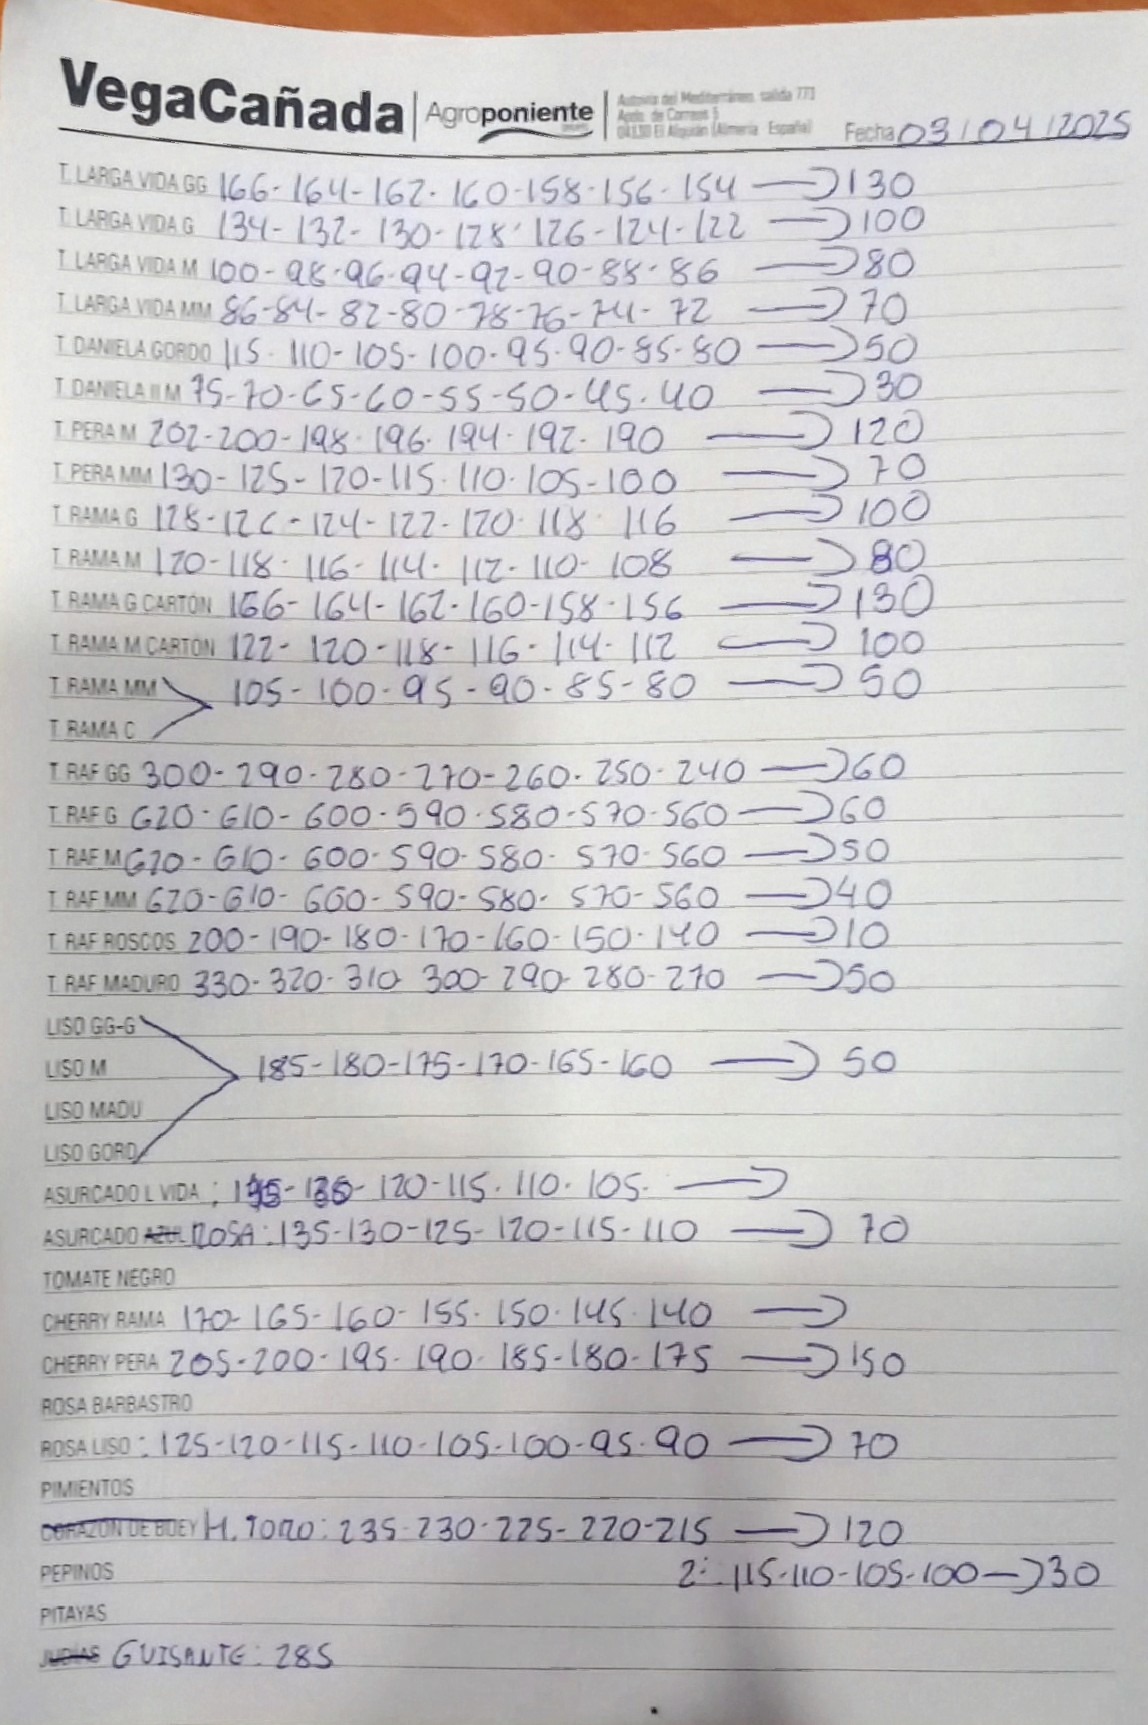 VegaCañada | Agroponiente
Autovía del Mediterráneo, salida 773
Apdo. de Correos 5
04130 El Alquián (Almería España)
Fecha 03/04/2025
T. LARGA VIDA GG 166-164-162-160-158-156-154 → 130
T. LARGA VIDA G 134-132-130-128-126-124-122 → 100
T. LARGA VIDA M 100-98-96-94-92-90-88-86 → 80
T. LARGA VIDA MM 86-84-82-80-78-76-74-72 → 70
T. DANIELA GORDO 115-110-105-100-95-90-85-80 → 50
T. DANIELA II M 75-70-65-60-55-50-45-40 → 30
T. PERA M 202-200-198-196-194-192-190 → 120
T. PERA MM 130-125-120-115-110-105-100 → 70
T. RAMA G 128-126-124-122-120-118-116 → 100
T. RAMA M 120-118-116-114-112-110-108 → 80
T. RAMA G CARTÓN 166-164-162-160-158-156 → 130
T. RAMA M CARTÓN 122-120-118-116-114-112 → 100
T. RAMA MM 105-100-95-90-85-80 → 50
T. RAMA C
T. RAF GG 300-290-280-270-260-250-240 → 60
T. RAF G 620-610-600-590-580-570-560 → 60
T. RAF M 620-610-600-590-580-570-560 → 50
T. RAF MM 620-610-600-590-580-570-560 → 40
T. RAF ROSCOS 200-190-180-170-160-150-140 → 10
T. RAF MADURO 330-320-310 300-290-280-270 → 50
LISO GG-G
LISO M 185-180-175-170-165-160 → 50
LISO MADU
LISO GORD
ASURCADO L VIDA : 120-115-110-105- →
ASURCADO ROSA: 135-130-125-120-115-110 → 70
TOMATE NEGRO
CHERRY RAMA 170-165-160-155-150-145-140 →
CHERRY PERA 205-200-195-190-185-180-175 → 150
ROSA BARBASTRO
ROSA LISO: 125-120-115-110-105-100-95-90 → 70
PIMIENTOS
CORAZON DE BUEY H. TORO: 235-230-225-220-215 → 120
PEPINOS 2: 115-110-105-100 → 30
PITAYAS
JUDIAS GUISANTE: 285